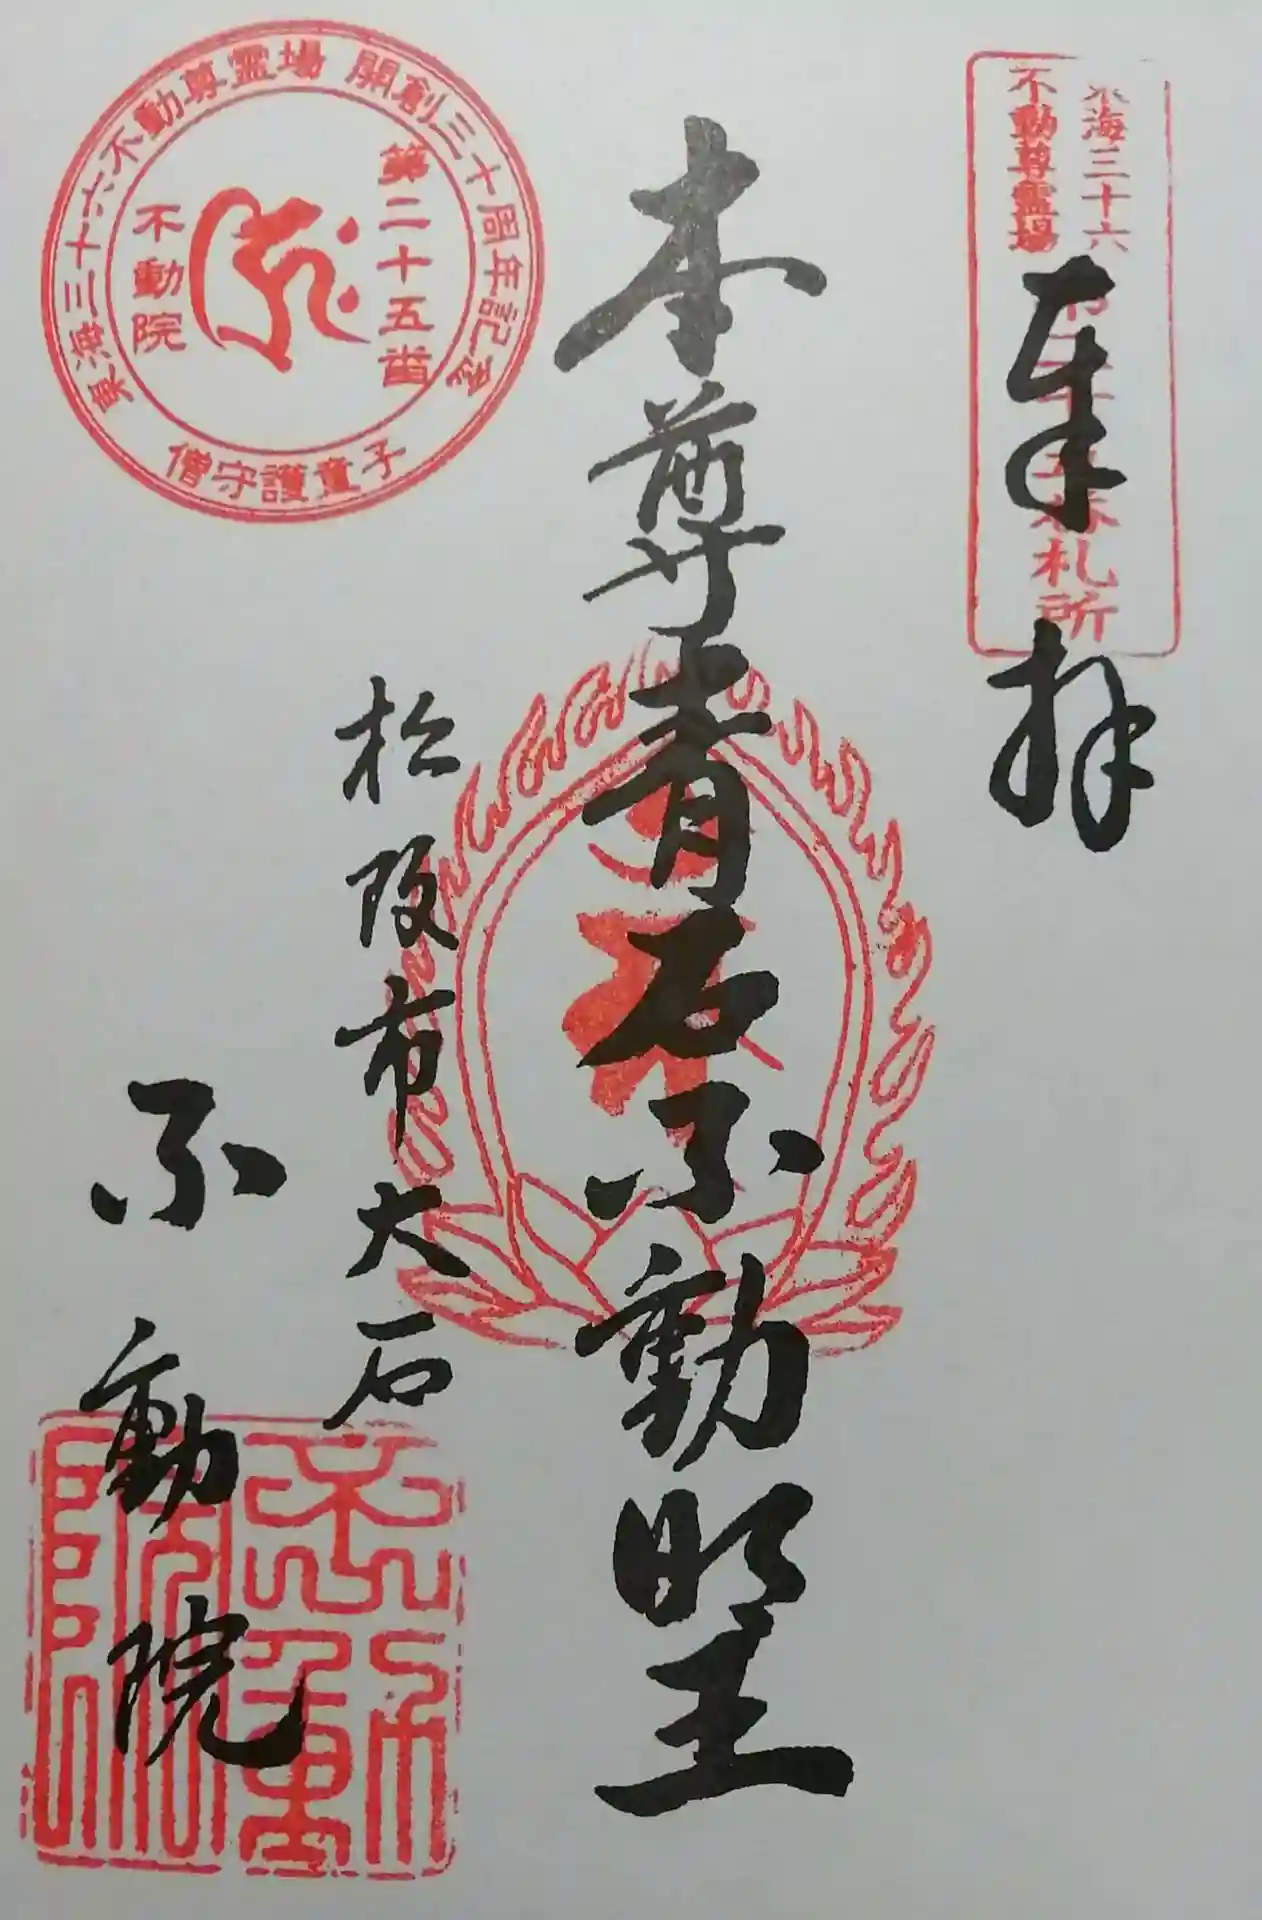 東海三十六
不動尊霊場
第二十五番札所
奉拝
本尊青石不動明王
松阪市大石
不動院
東海三十六不動尊霊場 開創三十周年記念
第二十五番
不動院
僧守護童子
不動院